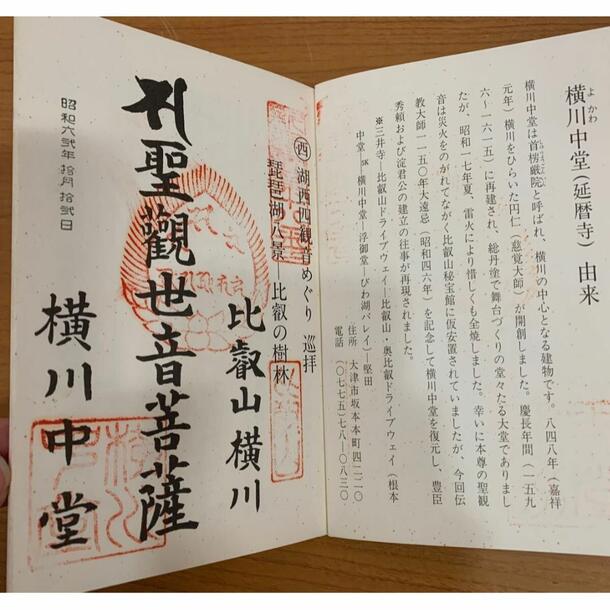 よかわ
横川中堂(延暦寺) 由来
横川中堂は首楞厳院と呼ばれ、横川の中心となる建物です。八四八年(嘉祥
元年)横川をひらいた円仁(慈覚大師)が開創しました。慶長年間(一五九
六〜一六一五)に再建され、総丹塗で舞台づくりの堂々たる大堂でありまし
たが、昭和一七年夏、雷火により惜しくも全焼しました。幸いに本尊の聖観
音は災火をのがれてながく比叡山秘宝館に仮安置されていましたが、今回伝
教大師一一五〇年大遠忌(昭和四六年)を記念して横川中堂を復元し、豊臣
秀頼および淀君公の建立の往事が再現されました。
※三井寺―比叡山ドライブウェイ―比叡山・奥比叡ドライブウェイ(根本
中堂―5K―横川中堂―浮御堂―びわ湖バレイ)―堅田
住所 大津市坂本本町四二二〇
電話 (〇七七五)七八―〇八三〇
西 湖西四観音めぐり 巡拝
琵琶湖八景―比叡の樹林
比叡山横川
聖觀世音菩薩
横川中堂
昭和六弐年拾月拾弐日